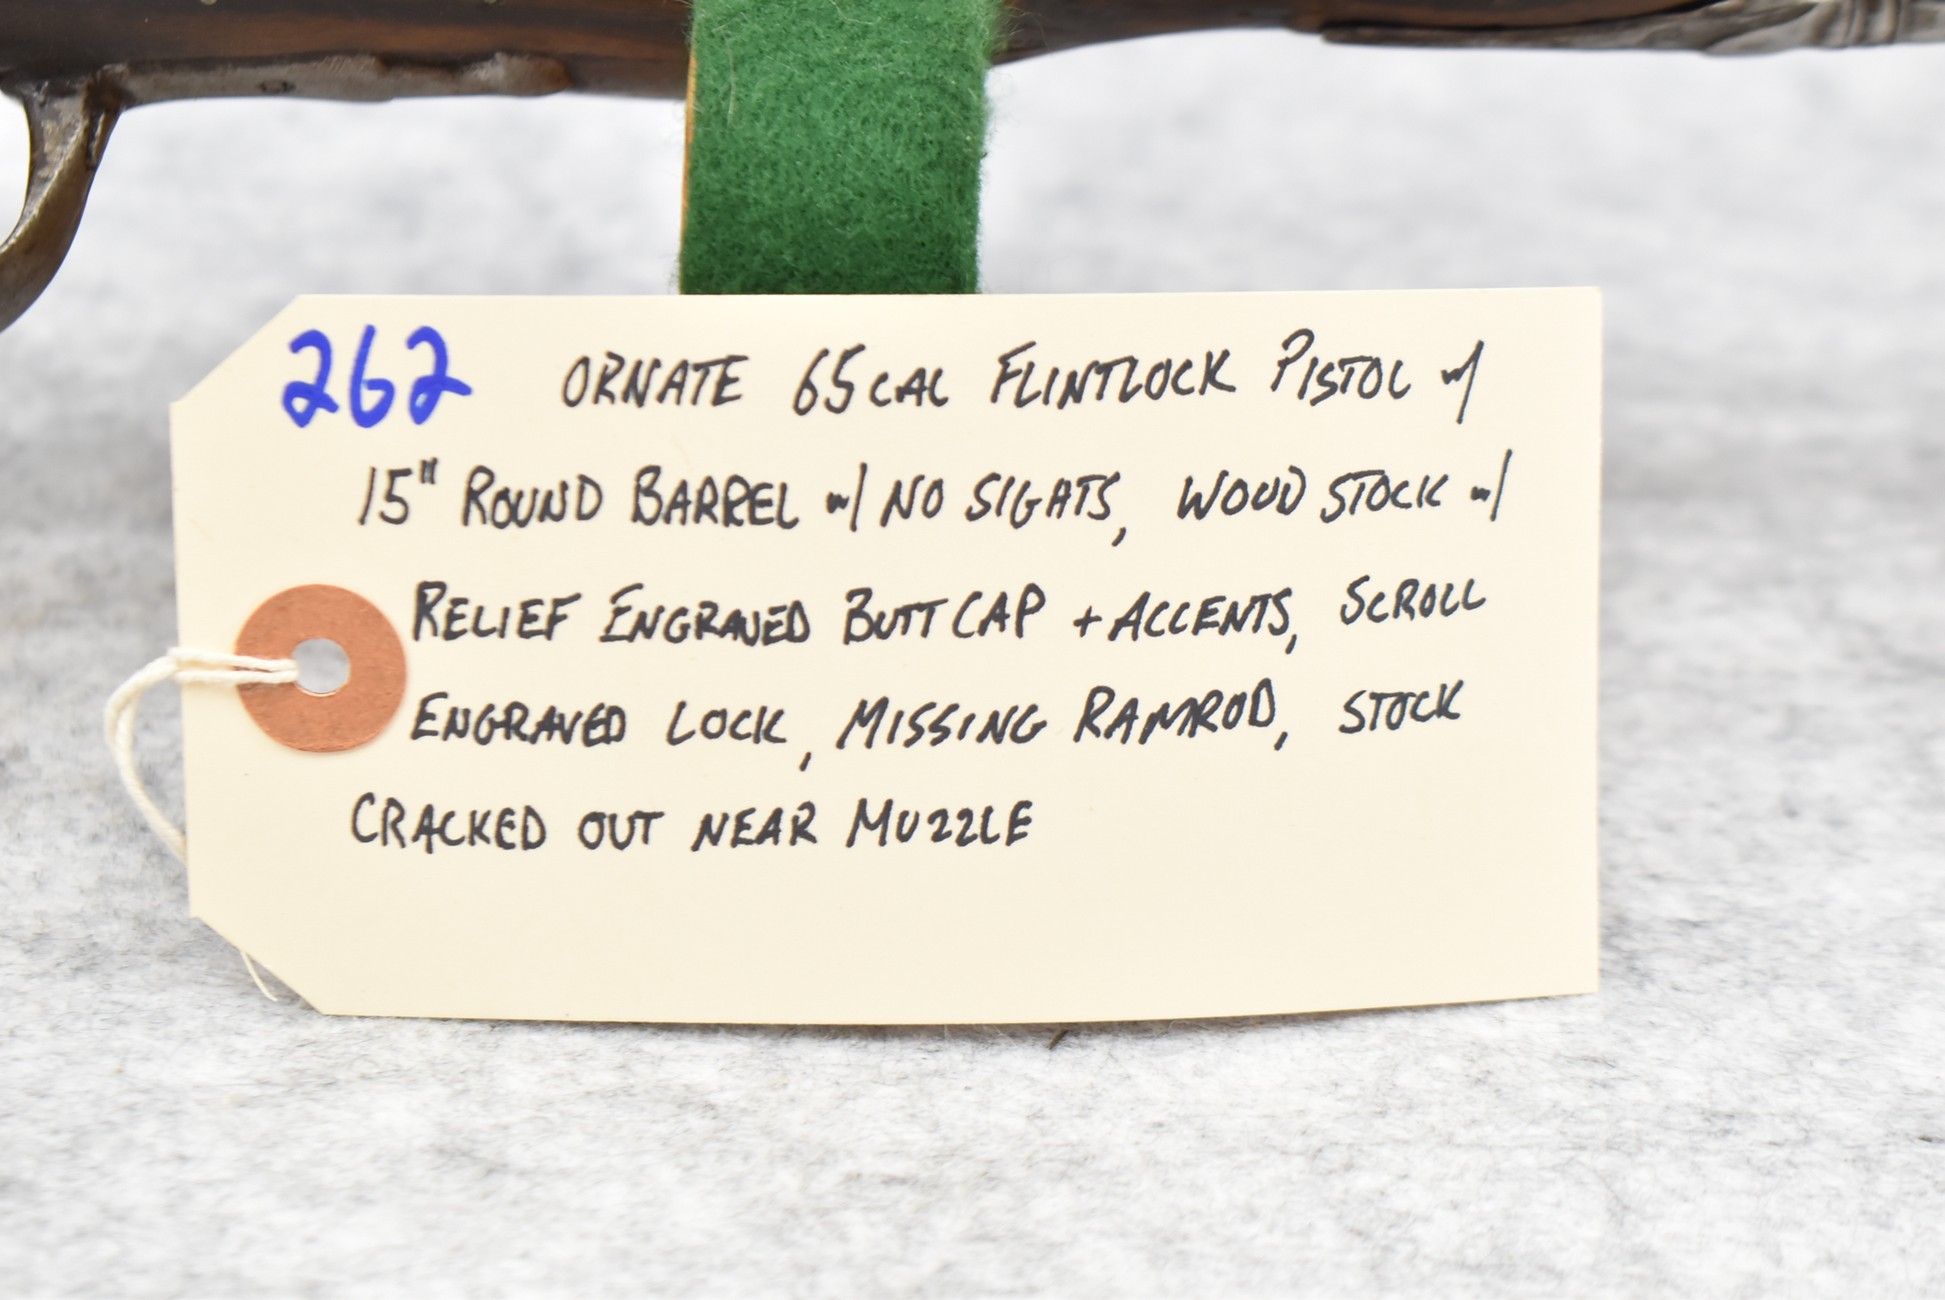 262 ORNATE 65 CAL FLINTLOCK PISTOL w/
15" ROUND BARREL w/ NO SIGHTS, WOOD STOCK w/
RELIEF ENGRAVED BUTT CAP + ACCENTS, SCROLL
ENGRAVED LOCK, MISSING RAMROD, STOCK
CRACKED OUT NEAR MUZZLE